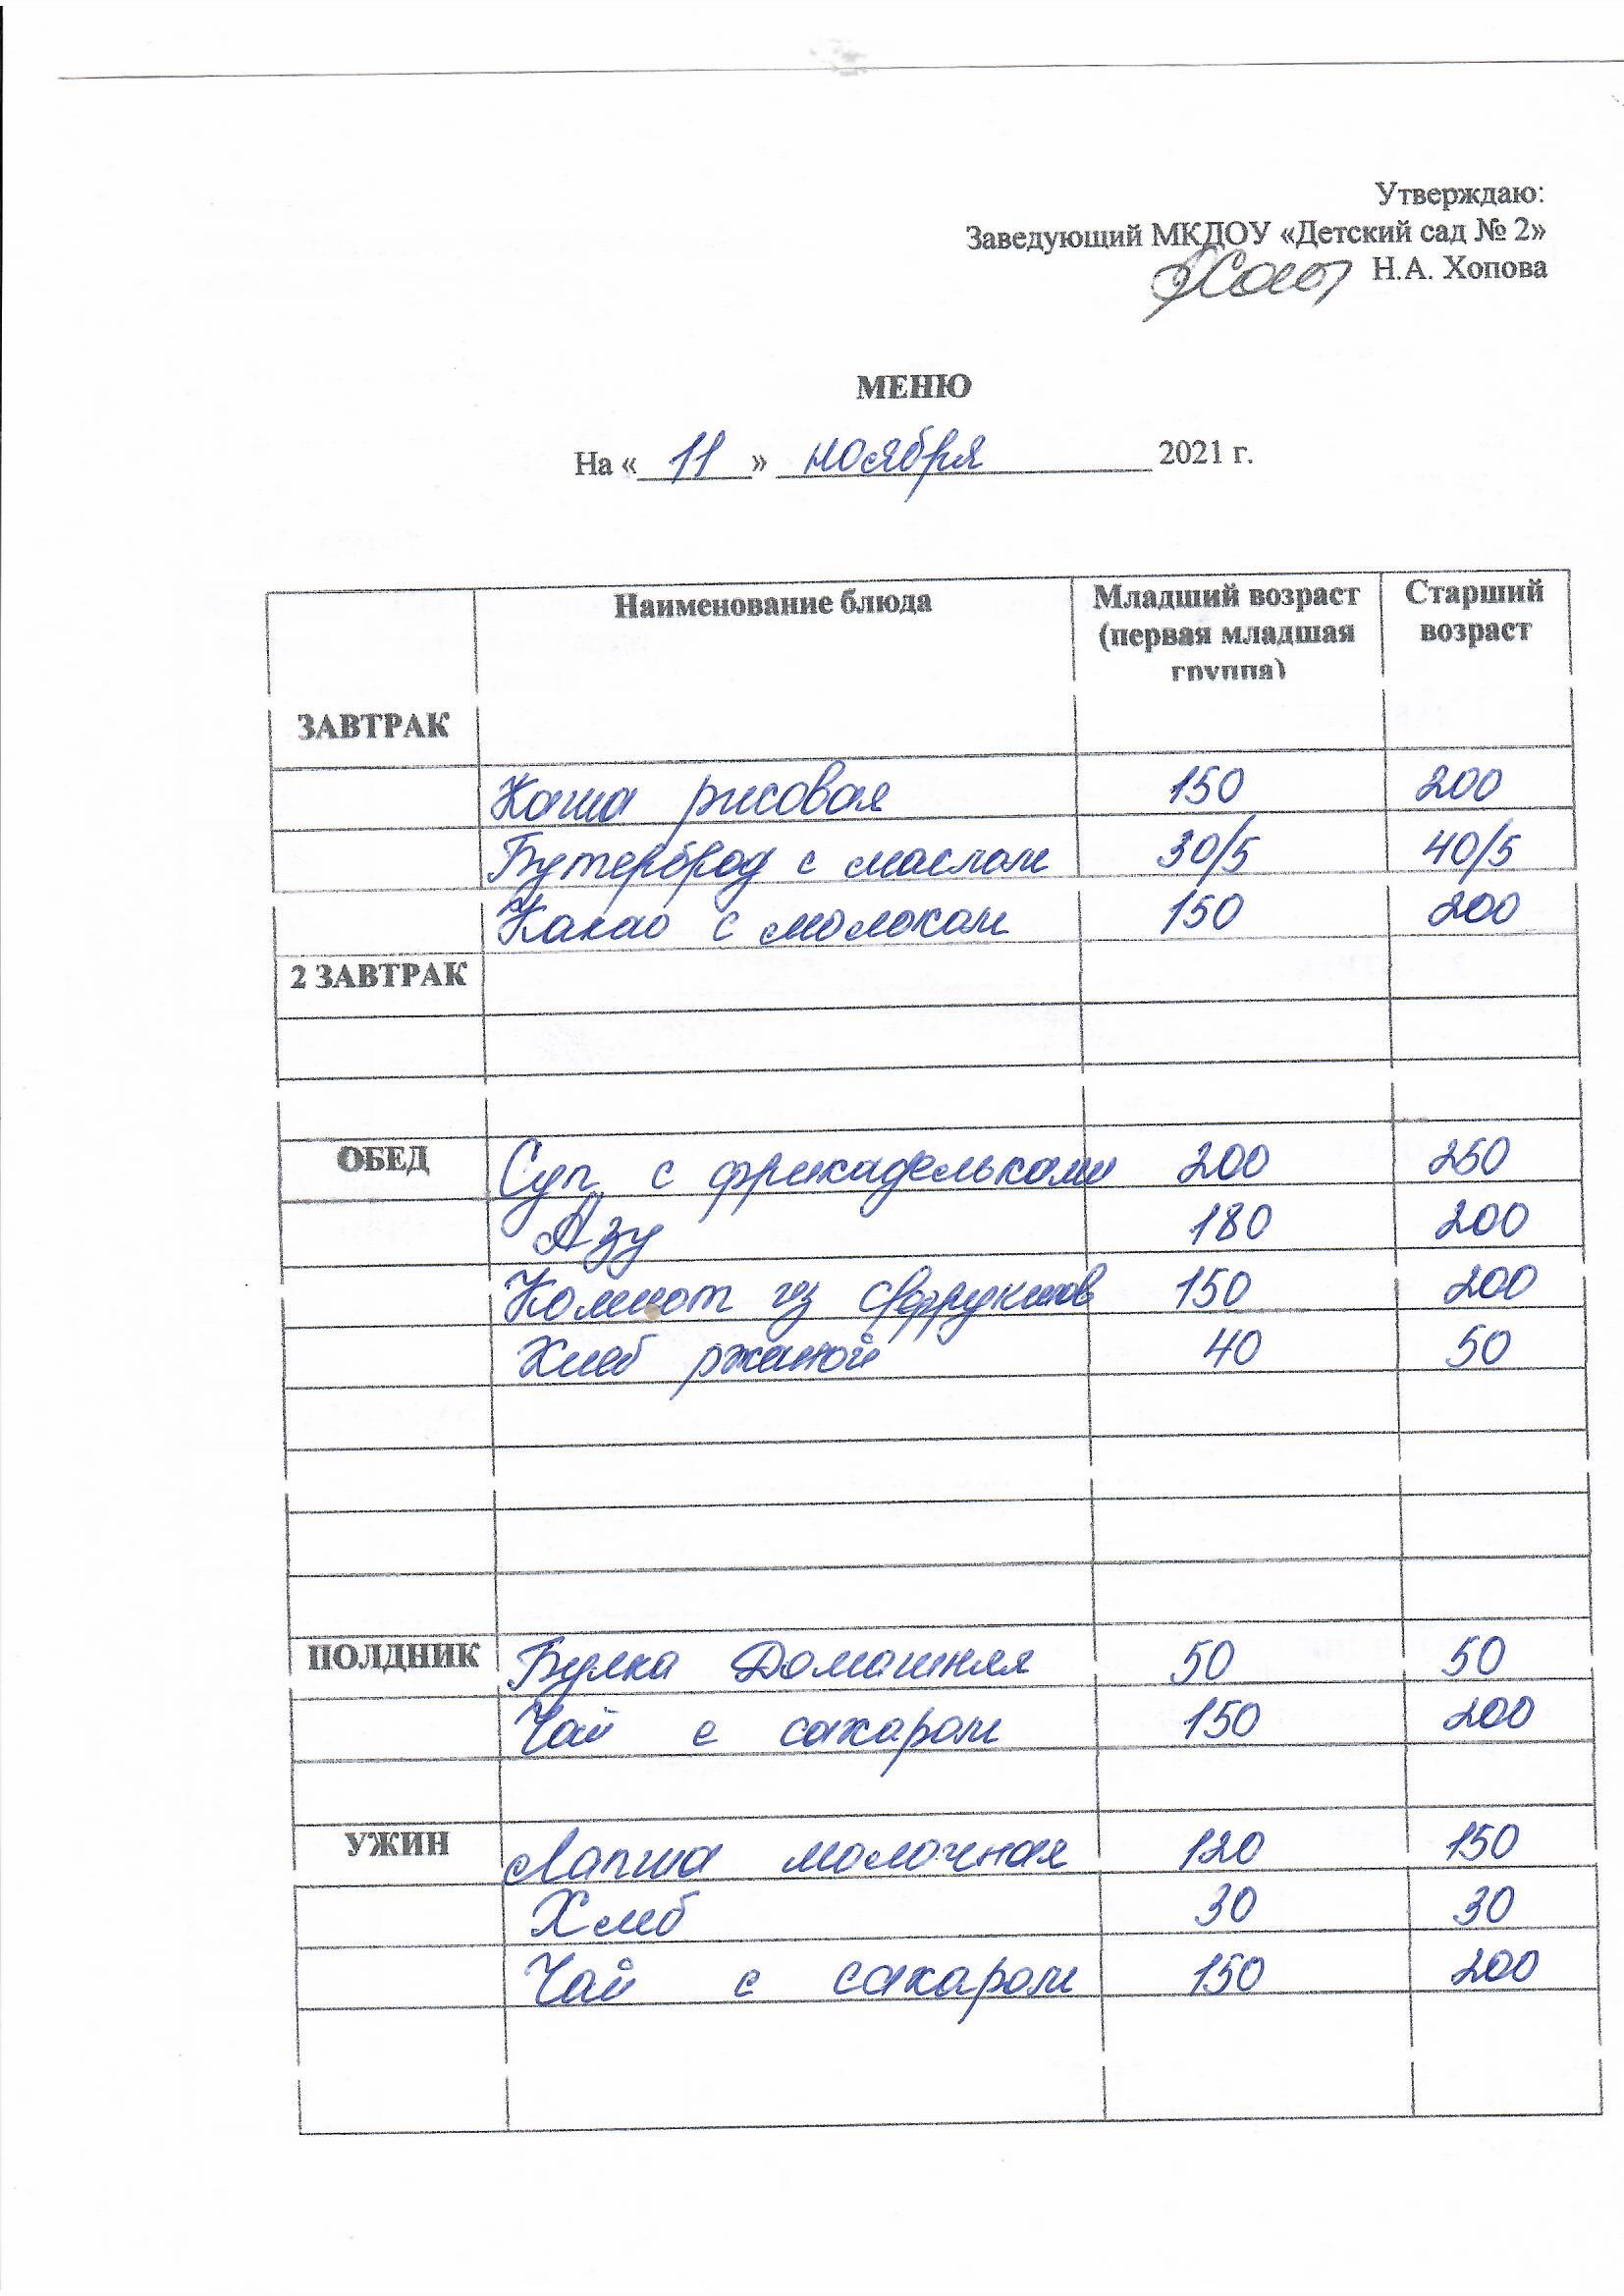 Утверждаю:
Заведующий МКДОУ «Детский сад № 2»
Н.А. Хопова
МЕНЮ
На « 11 » ноября 2021 г.
Наименование блюда Младший возраст (первая младшая группа) Старший возраст
ЗАВТРАК
Каша рисовая 150 200
Бутерброд с маслом 30/5 40/5
Какао с молоком 150 200
2 ЗАВТРАК
ОБЕД Суп с фрикадельками 200 250
Азу 180 200
Компот из с/фруктов 150 200
Хлеб ржаной 40 50
ПОЛДНИК Булка Домашняя 50 50
Чай с сахаром 150 200
УЖИН Лапша молочная 120 150
Хлеб 30 30
Чай с сахаром 150 200